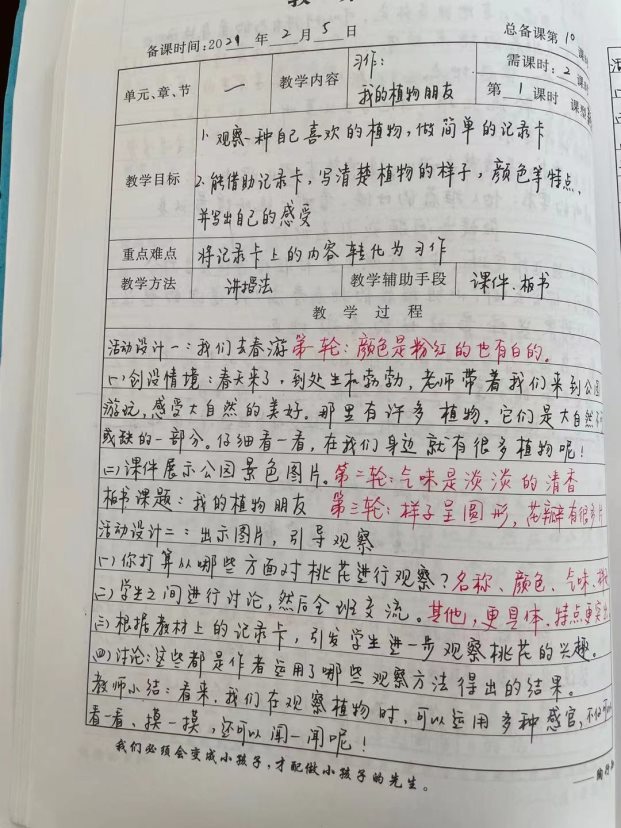 教
备课时间:2024 年 2 月 5 日
总备课第 10 课
单元、章、节 一 教学内容 习作: 我的植物朋友
需课时: 2 课时
第 1 课时 课型
教学目标
1. 观察一种自己喜欢的植物, 做简单的记录卡
2. 能借助记录卡, 写清楚植物的样子, 颜色等特点,
并写出自己的感受
重点难点 将记录卡上的内容转化为习作
教学方法 讲授法 教学辅助手段 课件、板书
教 学 过 程
活动设计一: 我们去春游 第一轮: 颜色是粉红的也有白的。
(一)创设情境: 春天来了, 到处生机勃勃, 老师带着我们来到公园
游玩, 感受大自然的美好。那里有许多植物, 它们是大自然不可
或缺的一部分。仔细看一看, 在我们身边就有很多植物呢!
(二)课件展示公园景色图片。 第二轮: 气味是淡淡的清香
板书课题: 我的植物朋友 第三轮: 样子呈圆形, 花瓣有很多片
活动设计二: 出示图片, 引导观察
(一)你打算从哪些方面对桃花进行观察? 名称、颜色、气味、样
(二)学生之间进行讨论, 然后全班交流。 其他, 更具体、特点更突出
(三)根据教材上的记录卡, 引发学生进一步观察桃花的兴趣。
(四)讨论: 这些都是作者运用了哪些观察方法得出的结果。
教师小结: 看来, 我们在观察植物时, 可以运用多种感官, 不仅可以
看一看、摸一摸, 还可以闻一闻呢!
我们必须会变成小孩子,才配做小孩子的先生。